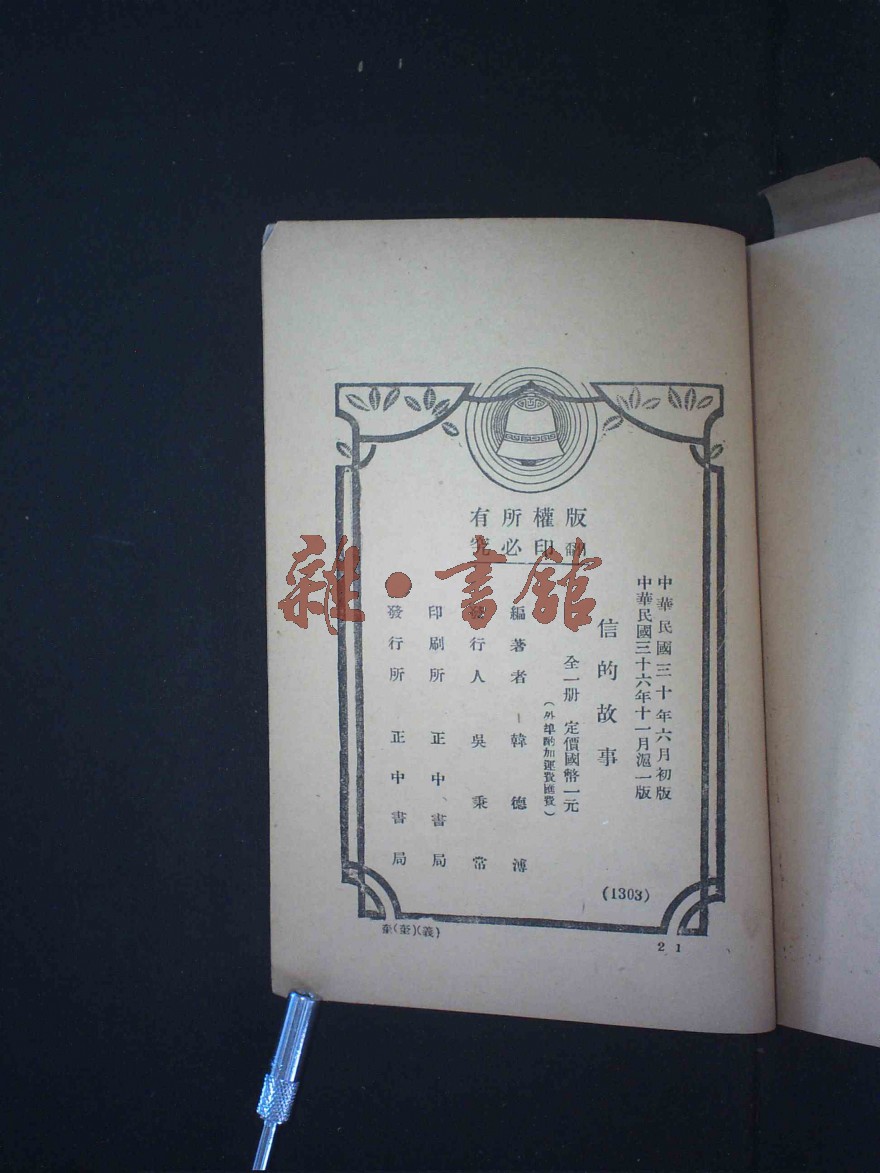 版權所有
翻印必究
中華民國三十年六月初版
中華民國三十六年十一月滬一版
信的故事
全一册 定價國幣一元
(外埠酌加運費匯費)
編著者 韓德溥
發行人 吳秉常
印刷所 正中書局
發行所 正中書局
(1303)
2 1
雜·書館